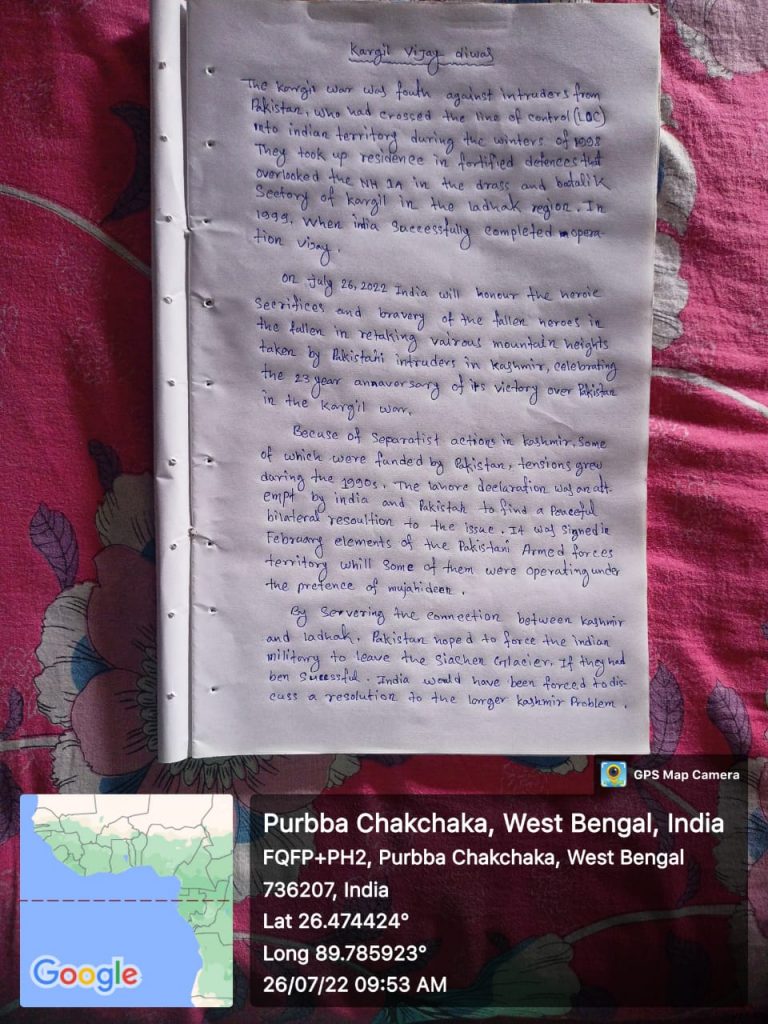 Kargil Vijay diwas
The kargil war was fouth against intruders from
Pakistan, who had crossed the line of control (LOC)
into indian territory during the winters of 1998
They took up residence in fortified defences that
overlooked the NH 1A in the drass and batalik
Sectory of kargil in the ladhak region. In
1999, When india Successfully completed opera-
tion vijay.
On July 26, 2022 India will honour the heroic
Secrifices and bravery of the fallen heroes in
the fallen in retaking vairous mountain heights
taken by Pakistani intruders in kashmir, celebrating
the 23 year annaversary of its victory over Pakistan
in the kargil war.
Becuse of Separatist actions in kashmir. Some
of which were funded by Pakistan, tensions grew
during the 1990s. The lahore declaration was an att-
empt by india and Pakistan to find a Peaceful
bilateral resoultion to the issue. It was signed in
February elements of the Pakistani Armed forces
territory whill Some of them were operating under
the pretence of mujahideen.
By Servering the connection between kashmir
and ladhak, Pakistan hoped to force the indian
militory to leave the Siachen Glacierr. If they had
ben Sucessful. India would have been forced to dis-
cuss a resolution to the larger kashmir Problem.
GPS Map Camera
Purbba Chakchaka, West Bengal, India
FQFP+PH2, Purbba Chakchaka, West Bengal
736207, India
Lat 26.474424°
Long 89.785923°
26/07/22 09:53 AM
Google